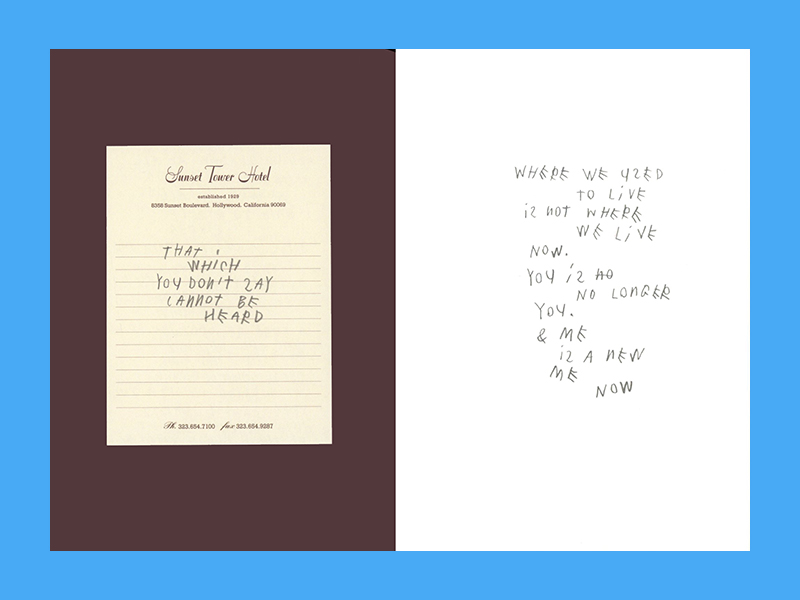 Sunset Tower Hotel
established 1929
8358 Sunset Boulevard, Hollywood, California 90069
THAT
WHICH
YOU DON'T ZAY
CANNOT BE
HEARD
Ph. 323.654.7100 fax 323.654.9287
WHERE WE UZED
TO LiVE
iz NOT WHERE
WE LiVE
NOW.
YOU iz NO
NO LONGER
YOU.
& ME
iz A NEW
ME
NOW